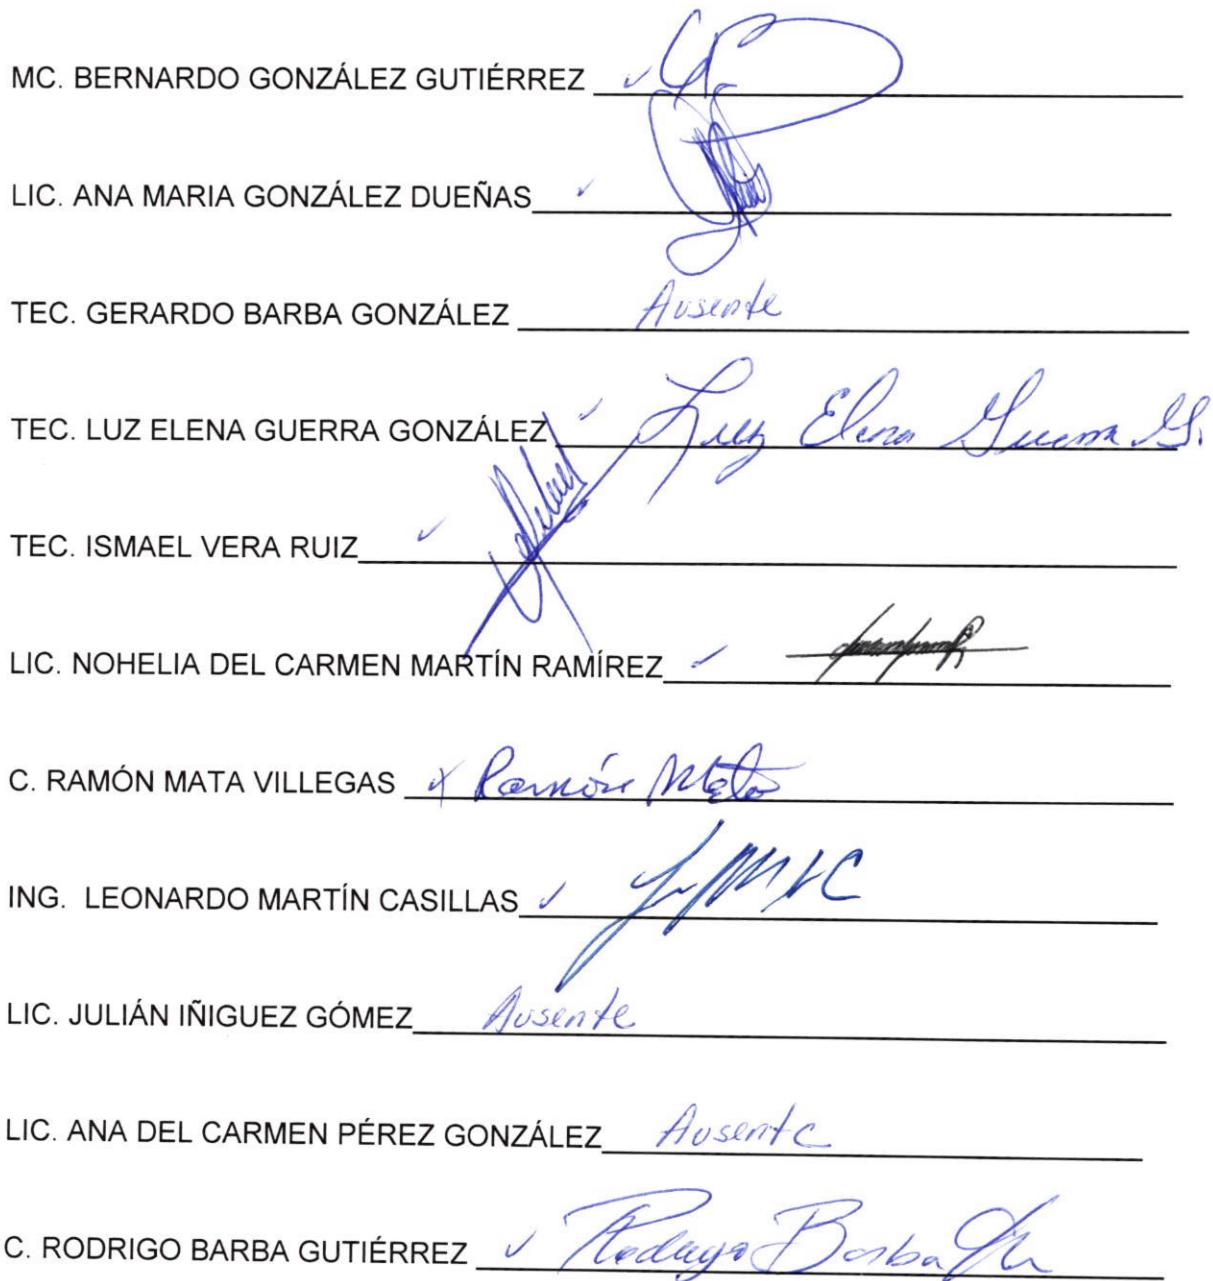 MC. BERNARDO GONZÁLEZ GUTIÉRREZ
LIC. ANA MARIA GONZÁLEZ DUEÑAS
TEC. GERARDO BARBA GONZÁLEZ Ausente
TEC. LUZ ELENA GUERRA GONZÁLEZ Luz Elena Guerra G.
TEC. ISMAEL VERA RUIZ
LIC. NOHELIA DEL CARMEN MARTÍN RAMÍREZ
C. RAMÓN MATA VILLEGAS Ramón Mata
ING. LEONARDO MARTÍN CASILLAS
LIC. JULIÁN IÑIGUEZ GÓMEZ Ausente
LIC. ANA DEL CARMEN PÉREZ GONZÁLEZ Ausente
C. RODRIGO BARBA GUTIÉRREZ Rodrigo Barba